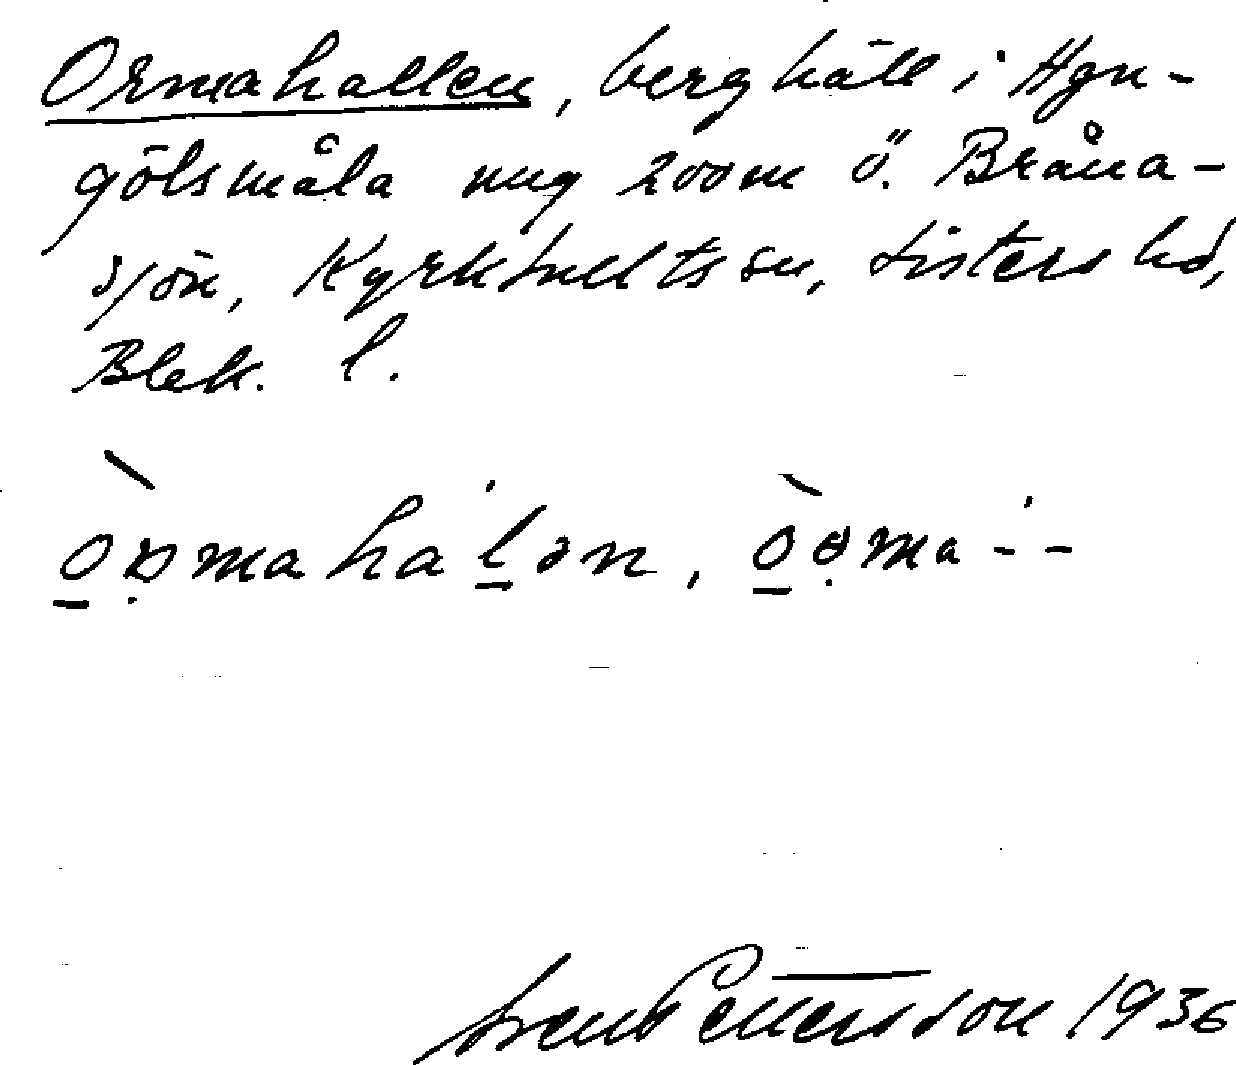 Ormahallen, berghäll i Hgn-
gölsmåla nug 200m ö. Bråna-
sjön, Kyrkhultssn, Listers hd,
Blek. l.
òrmahalən, òəma--
Sven Pettersson 1936